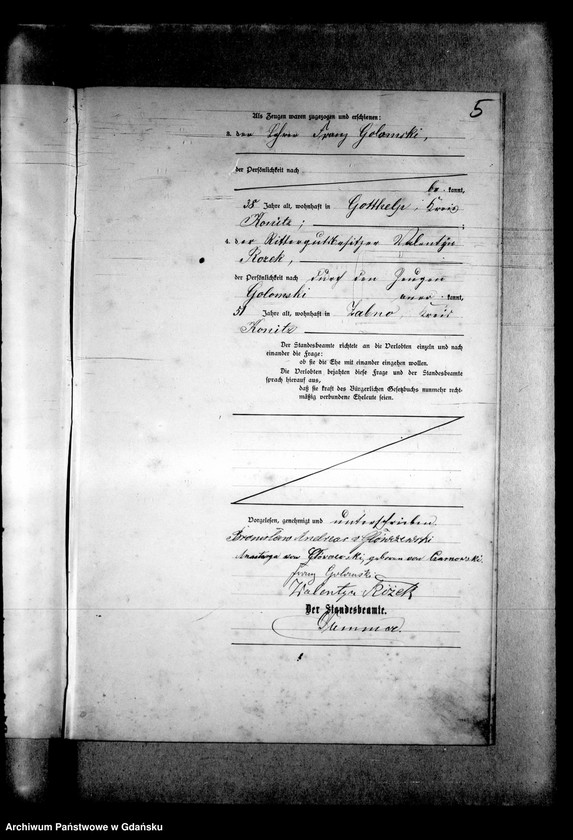 5
Als Zeugen waren zugezogen und erschienen:
3. der Lehrer Franz Golomski,
der Persönlichkeit nach
be kannt,
35 Jahre alt, wohnhaft in Gotthelp, Kreis
Konitz;
4. der Rittergutsbesitzer Valentyn
Rozek,
der Persönlichkeit nach durch den Zeugen
Golomski aner kannt,
51 Jahre alt, wohnhaft in Zabno, Kreis
Konitz
Der Standesbeamte richtete an die Verlobten einzeln und nach
einander die Frage:
ob sie die Ehe mit einander eingehen wollen.
Die Verlobten bejahten diese Frage und der Standesbeamte
sprach hierauf aus,
daß sie kraft des Bürgerlichen Gesetzbuchs nunmehr recht-
mäßig verbundene Eheleute seien.
Vorgelesen, genehmigt und unterschrieben.
Bronislaw Andreas v Glowczewski
von geboren von Czarnowski.
Franz Golomski
Walentyn Różek
Der Standesbeamte.
Archiwum Państwowe w Gdańsku